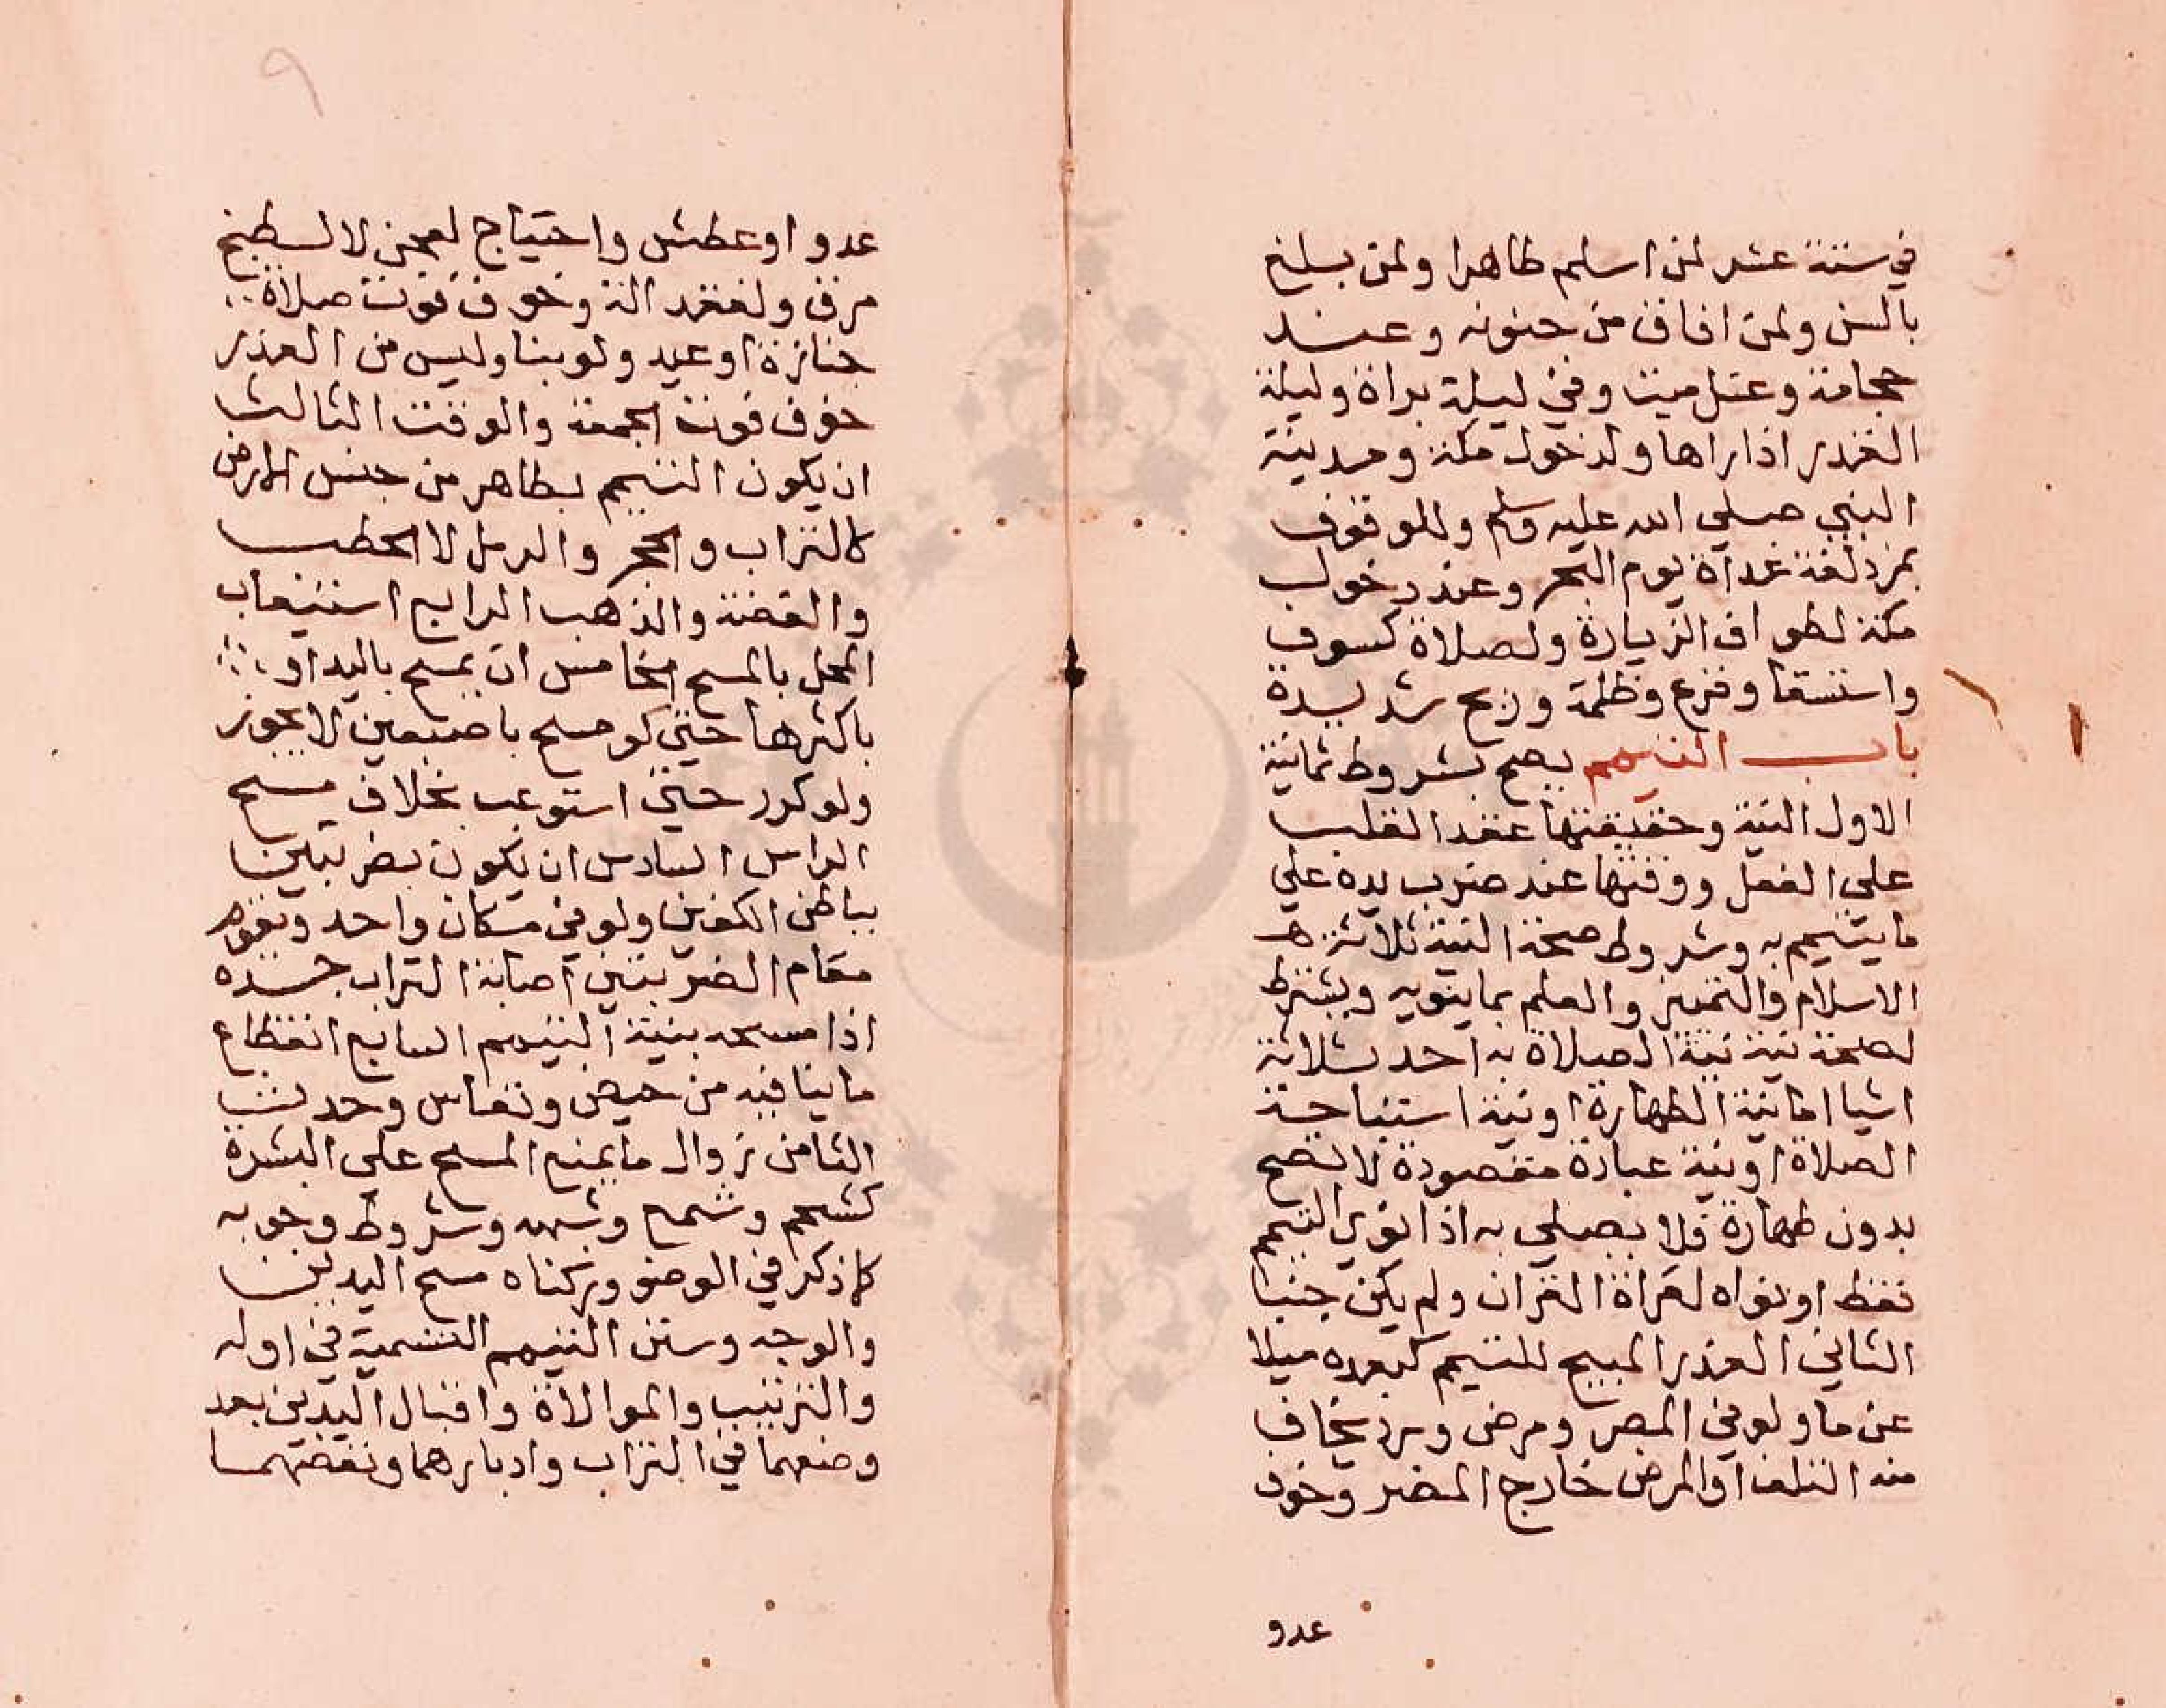 في ستة عشر لمن اسلم طاهرا ولمن بلغ
بالسن ولمن افاق من جنونه وعند
حجامة وغسل ميت وفي ليلة براة وليلة
القدر اذا راها ولدخول مكة ومدينة
النبي صلي الله عليه وسلم وللوقوف
بمزدلفة غداة يوم النحر وعند دخول
مكة لطواف الزيارة ولصلاة كسوف
واستسقا وفزع وظلمة وريح شديدة
باب التيمم يصح بشروط ثمانية
الاول النية وحقيقتها عقد القلب
علي الفعل ووقتها عند ضرب يده علي
ما يتيمم به وشروط صحة النية ثلاثة
الاسلام والتمييز والعلم بما ينويه ويشترط
لصحة نية تيمة الصلاة به احد ثلاثة
اشيا اما نية الطهارة او نية استباحة
الصلاة او نية عبادة مقصودة لا تصح
بدون طهارة فلا يصلي به اذا نوي التيمم
فقط او نواه لقراة القران ولم يكن جنبا
الثاني العذر المبيح للتيمم كبعده ميلا
عن ما ولو في المصر ومرض وبرد يخاف
منه التلف او المرض خارج المصر وخوف
عدو
٩
عدو او عطش واحتياج لعجن لا لطبخ
مرق ولفقد الة وخوف فوت صلاة
جنازة او عيد ولو بنا وليس من العذر
خوف فوت الجمعة والوقت الثالث
ان يكون التيمم بطاهر من جنس الارض
كالتراب والحجر والرمل لا الحطب
والفضة والذهب الرابع استيعاب
المحل بالمسح الخامس ان يمسح باليد او
باكثرها حتي لو مسح باصبعين لا يجوز
ولو كرر حتي استوعب بخلاف مسح
الراس السادس ان يكون بضربتين
بباطن الكفين ولو في مكان واحد ويقوم
مقام الضربتين اصابة التراب جسده
اذا مسحه بنية التيمم السابع انقطاع
ما ينافيه من حيض ونفاس وحدث
الثامن زوال ما يمنع المسح علي البشرة
كشحم وشمع وشبهه وشروط وجوبه
كما ذكر في الوضو وركناه مسح اليدين
والوجه وسنن التيمم التسمية في اوله
والترتيب والموالاة واقبال اليدين بعد
وضعهما في التراب وادبارهما ونفضهما